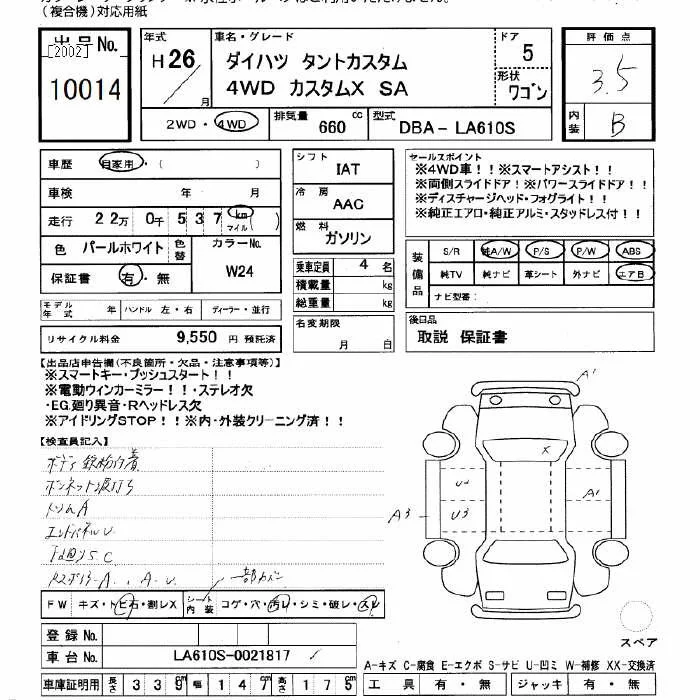 (複合機)対応用紙
出品No.
[2002]
10014
年式
H26/月
車名・グレード
ダイハツ タントカスタム
4WD カスタムX SA
ドア
5
形状
ワゴン
評価点
3.5
内装
B
2WD・4WD
排気量 660 cc
型式 DBA- LA610S
車歴 自家用・( )
車検 年 月
走行 22万 0千 537 km マイル ( )
色 パールホワイト
色替
カラーNo.
W24
保証書 有・無
シフト
IAT
冷房
AAC
燃料
ガソリン
乗車定員 4 名
積載量 kg
総重量 kg
セールスポイント
※4WD車!!※スマートアシスト!!
※両側スライドドア!※パワースライドドア!!
※ディスチャージヘッド・フォグライト!!
※純正エアロ・純正アルミ・スタッドレス付!!
装備品
S/R 純A/W P/S P/W ABS
純TV 純ナビ 革シート 外ナビ エアB
ナビ型番:
モデル年式 年 ハンドル 左・右 ディーラー・並行
リサイクル料金 9,550 円 預託済
名変期限
月 日
後日品
取説 保証書
【出品店申告欄(不良箇所・欠品・注意事項等)】
※スマートキー・プッシュスタート!!
※電動ウィンカーミラー!!・ステレオ欠
・EG.廻り異音・Rヘッドレス欠
※アイドリングSTOP!!※内・外装クリーニング済!!
【検査員記入】
ボディ鉄粉付着
ボンネット波打ち
トリムA
エンドパネルU
下廻りS.C
一部カバン
A1
X
U2
U3
A3
A1
FW キズ・トビ石・割レX
シート内装 コゲ・穴・汚レ・シミ・破レ・スレ
登録No.
車台No. LA610S-0021817
車庫証明用 長さ 339cm 幅 147cm 高さ 175cm
スペア
A-キズ C-腐食 E-エクボ S-サビ U-凹ミ W-補修 XX-交換済
工具 有・無 ジャッキ 有・無